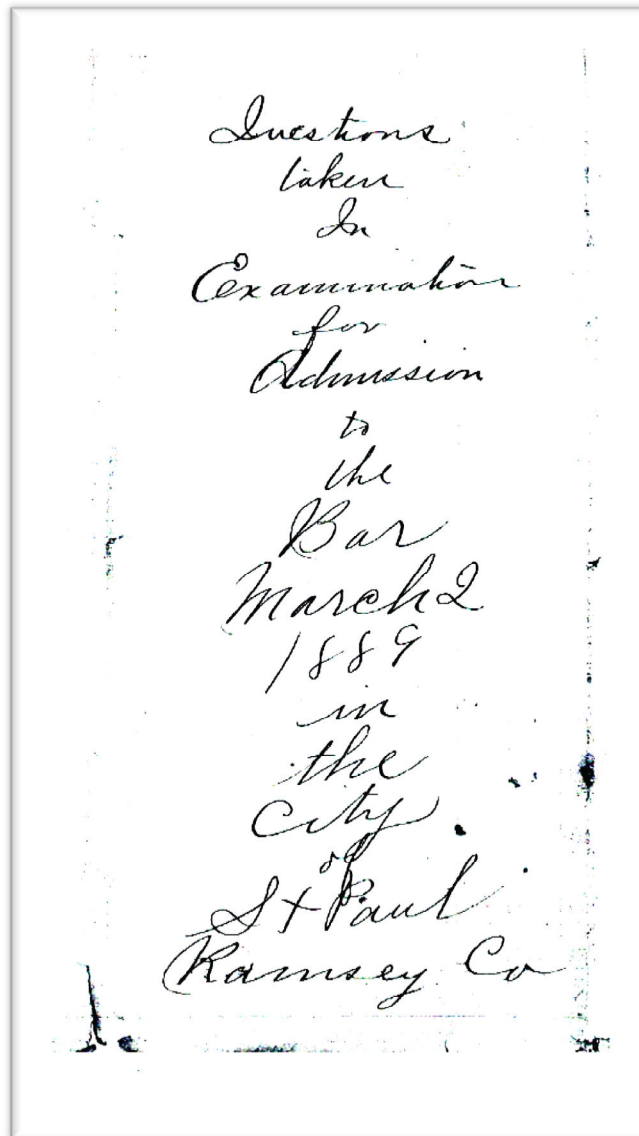 Questions
taken
In
Examination
for
Admission
to
the
Bar
March 2
1889
in
the
City
of
St Paul
Ramsey Co